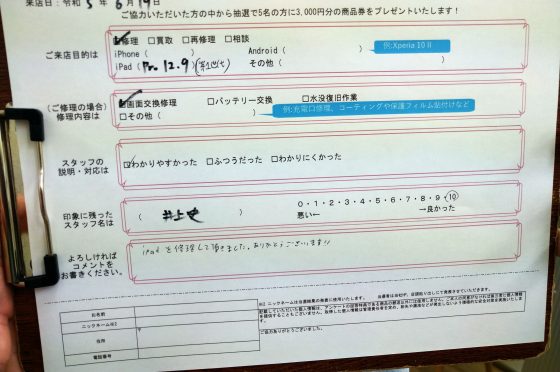 来店日：令和 5 年 6月 19日
ご協力いただいた方の中から抽選で5名の方に3,000円分の商品券をプレゼントいたします！
ご来店目的は
☑修理 □買取 □再修理 □相談
iPhone（ ） Android（ ） 例:Xperia 10 II
iPad（Pro 12.9）(第1世代) その他（ ）
(ご修理の場合)
修理内容は
☑画面交換修理 □バッテリー交換 □水没復旧作業
□その他（ ） 例:充電口修理、コーティングや保護フィルム貼付けなど
スタッフの
説明・対応は
☑わかりやすかった □ふつうだった □わかりにくかった
印象に残った
スタッフ名は
（ 井上 ）
0・1・2・3・4・5・6・7・8・9・10
悪い← →良かった
よろしければ
コメントを
お書きください。
iPadを修理して頂きました。ありがとうございます!!
お名前
ニックネーム※2
住所
〒
電話番号
ご協力ありがとうございました。